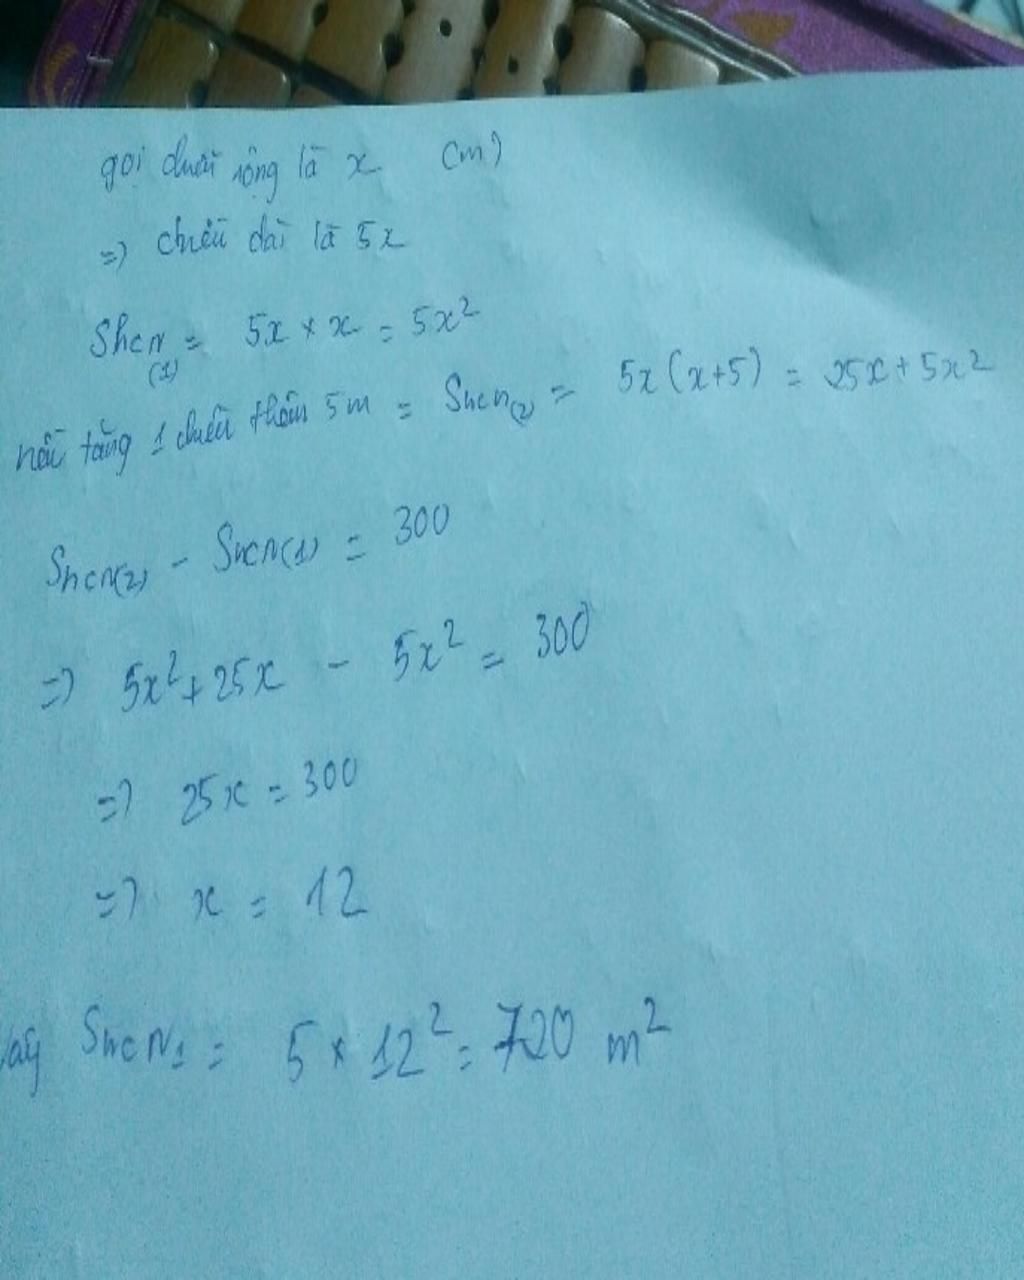 gọi chiều rộng là x (m)
=> chiều dài là 5x
Shcn(1) = 5x * x = 5x²
nếu tăng 1 chiều thêm 5m = Shcn(2) = 5x(x+5) = 25x + 5x²
Shcn(2) - Shcn(1) = 300
=> 5x² + 25x - 5x² = 300
=> 25x = 300
=> x = 12
vậy Shcn1 = 5 * 12² = 720 m²